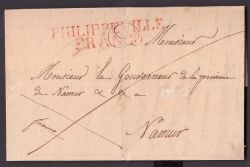 PHILIPPEVILLE
FRANCO
Monsieur
Monsieur le Gouverneur de la province
de Namur &a &a
franco
Namur